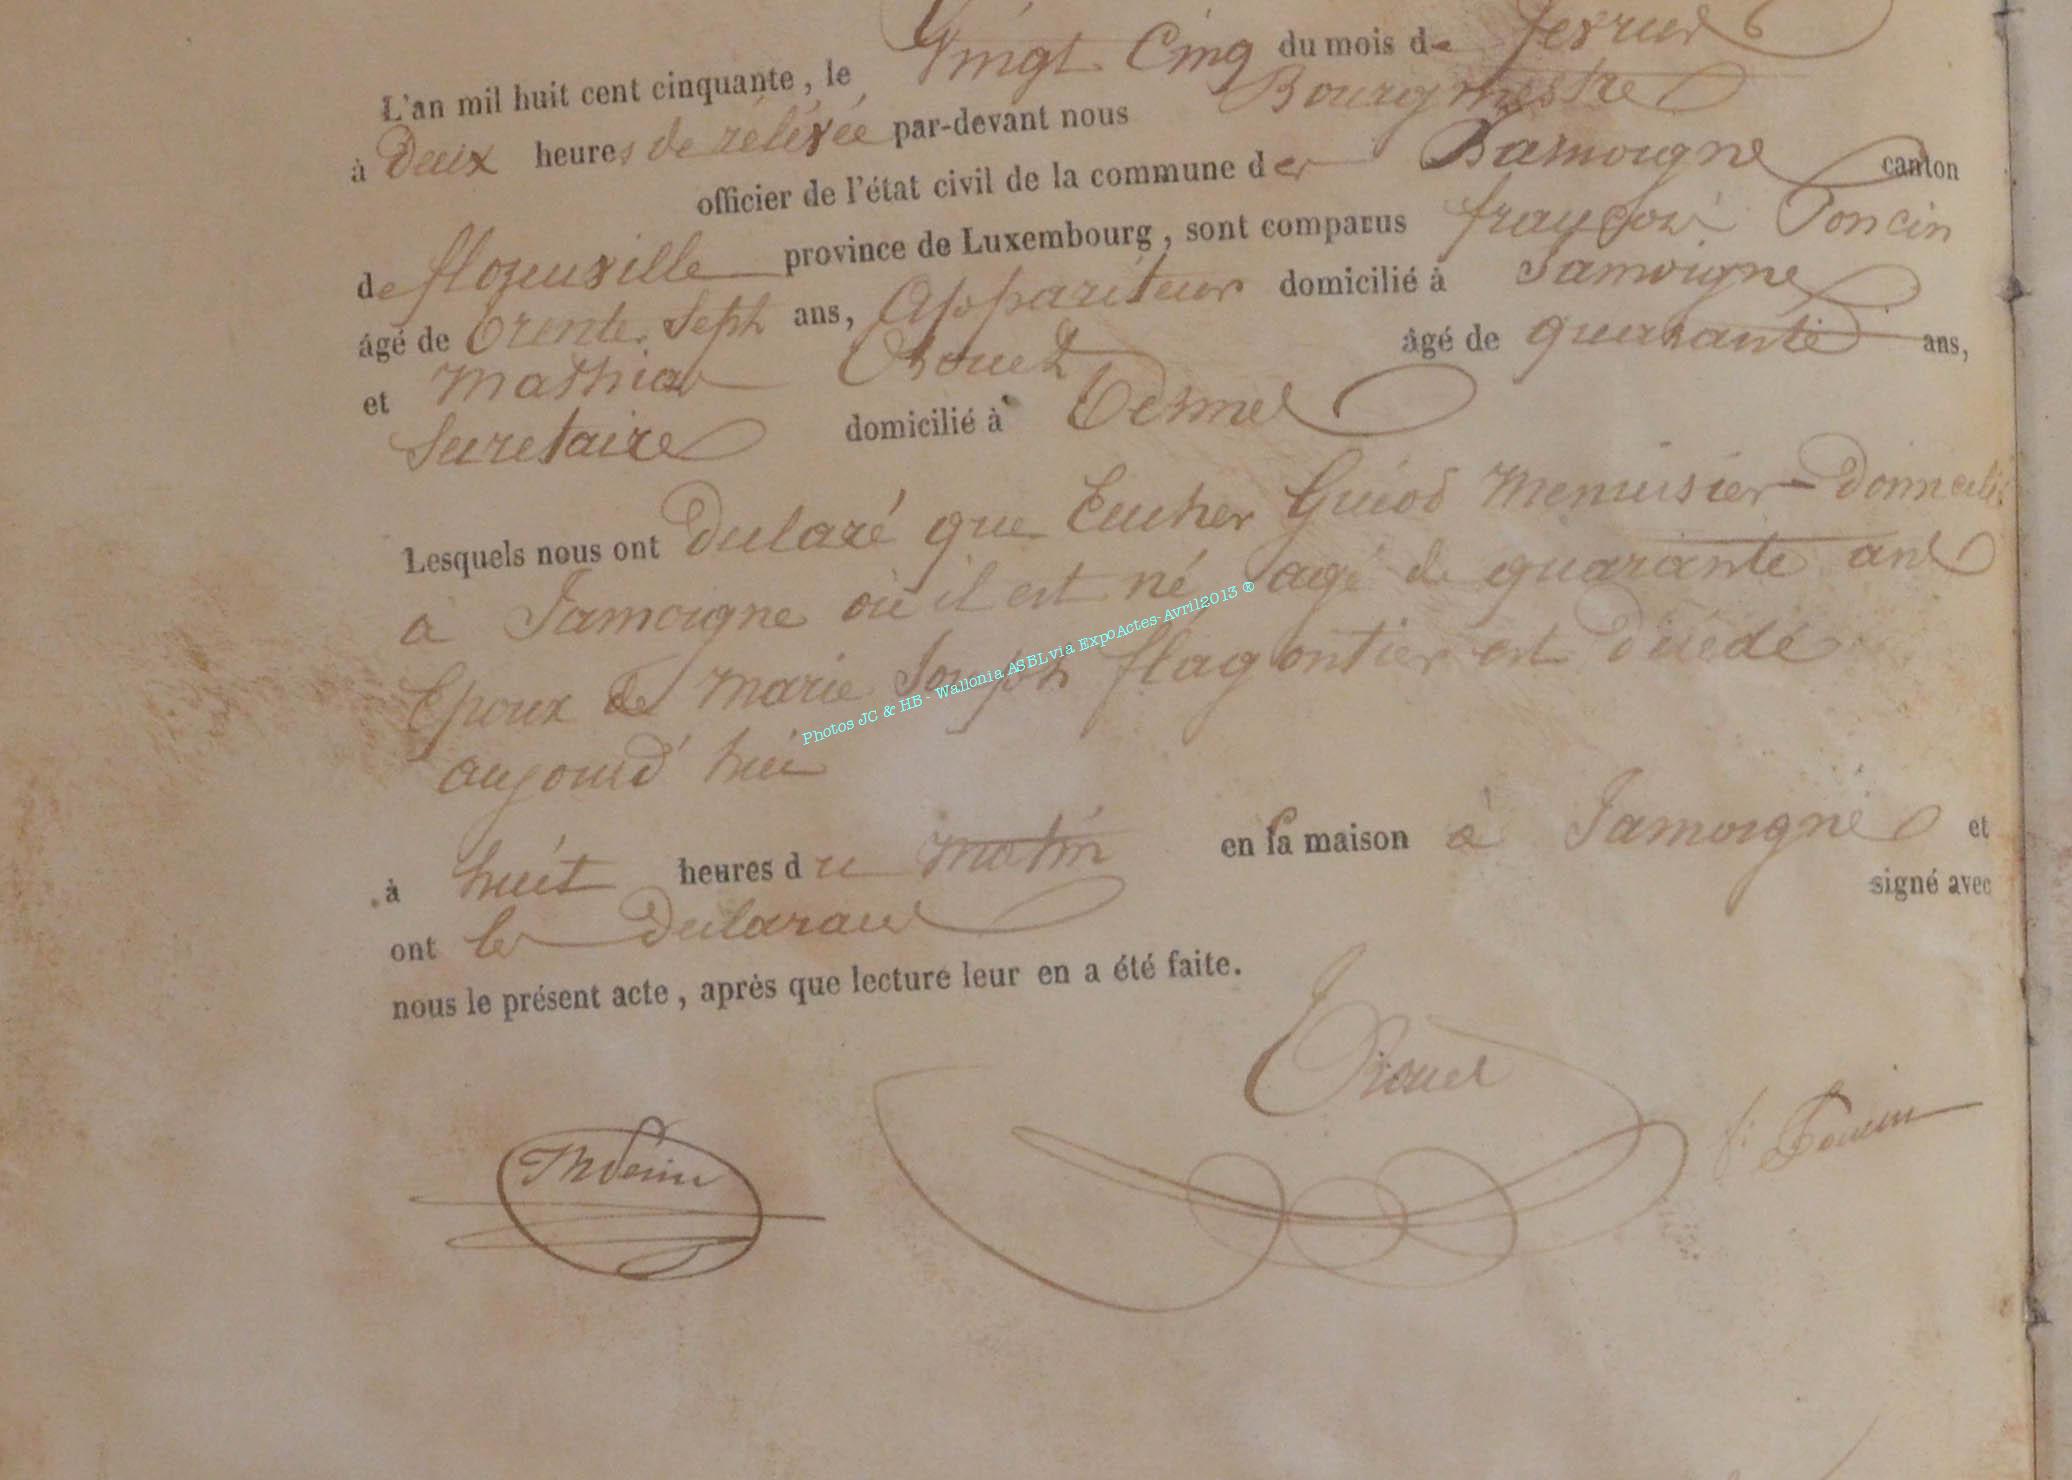 L'an mil huit cent cinquante, le Vingt Cinq du mois de fevrier
à Deux heures de rélévée par-devant nous Bourgmestre
officier de l'état civil de la commune de Jamoigne canton
de florenville province de Luxembourg, sont comparus françois Poncin
âgé de trente Sept ans, Appariteur domicilié à Jamoigne
et Mathias âgé de quarante ans,
Secretaire domicilié à termes
Lesquels nous ont Declaré que Eucher Guiod Menuisier domicilié
à Jamoigne où il est né, agé de quarante ans
Epoux de Marie Joseph flagontier est décédé
aujourd'hui
à huit heures du matin en sa maison à Jamoigne et
ont les Declarans signé avec
nous le présent acte, après que lecture leur en a été faite.
f: Poncin
Photos JC & HB - Wallonia ASBL via ExpoActes-Avril2013 ®